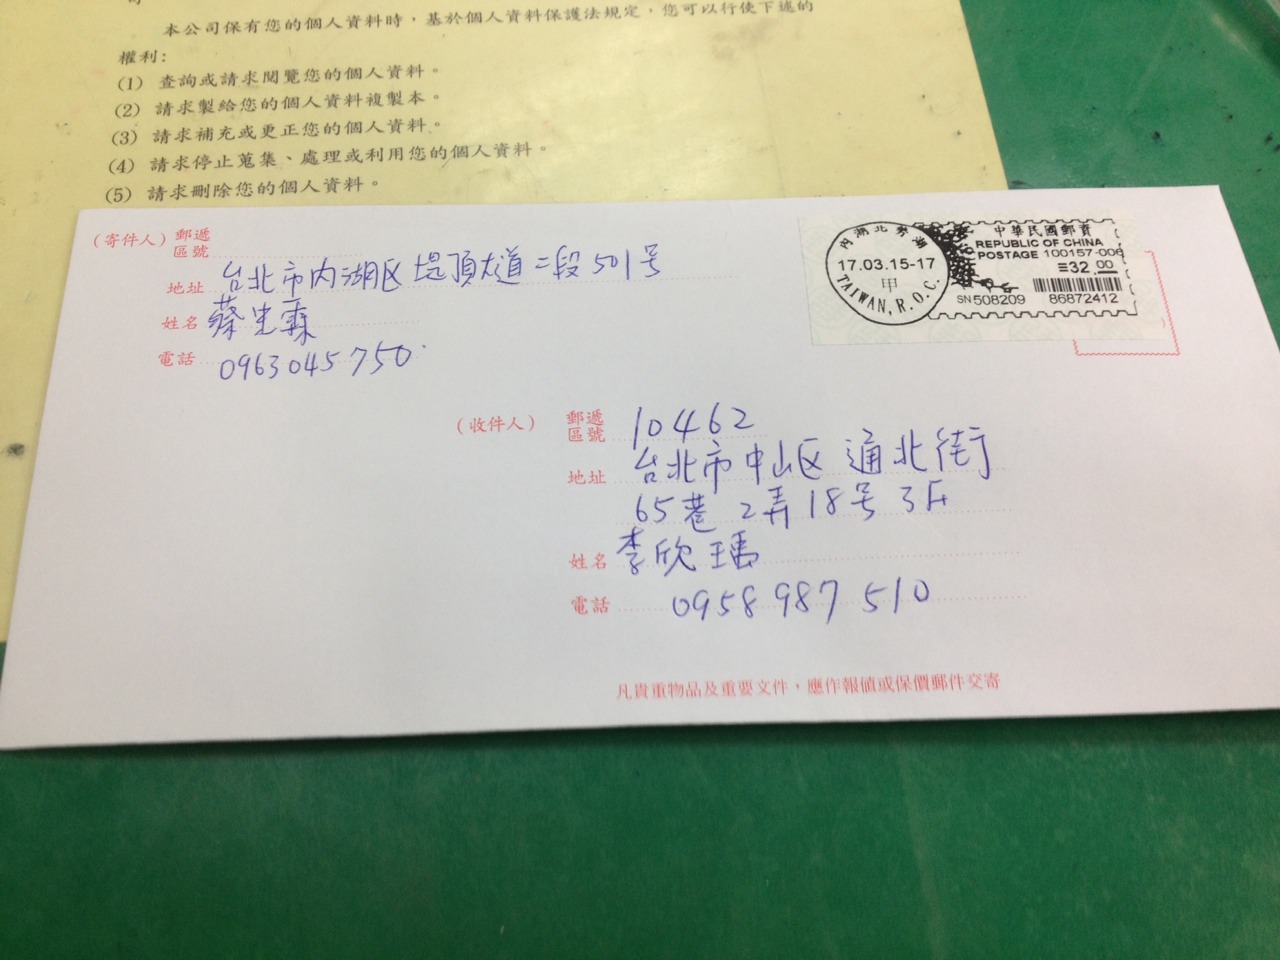 本公司保有您的個人資料時，基於個人資料保護法規定，您可以行使下述的
權利：
(1) 查詢或請求閱覽您的個人資料。
(2) 請求製給您的個人資料複製本。
(3) 請求補充或更正您的個人資料。
(4) 請求停止蒐集、處理或利用您的個人資料。
(5) 請求刪除您的個人資料。
（寄件人）郵遞區號
地址 台北市内湖区堤頂大道二段501号
姓名 蔡忠霖
電話 0963045750
內湖北勢湖
17.03.15-17
甲
TAIWAN, R.O.C.
中華民國郵資
REPUBLIC OF CHINA
POSTAGE 100157-006
≡32.00
SN 508209 86872412
（收件人）郵遞區號 10462
地址 台北市中山区通北街
65巷2弄18号3F
姓名 李欣瑀
電話 0958 987 510
凡貴重物品及重要文件，應作報值或保價郵件交寄